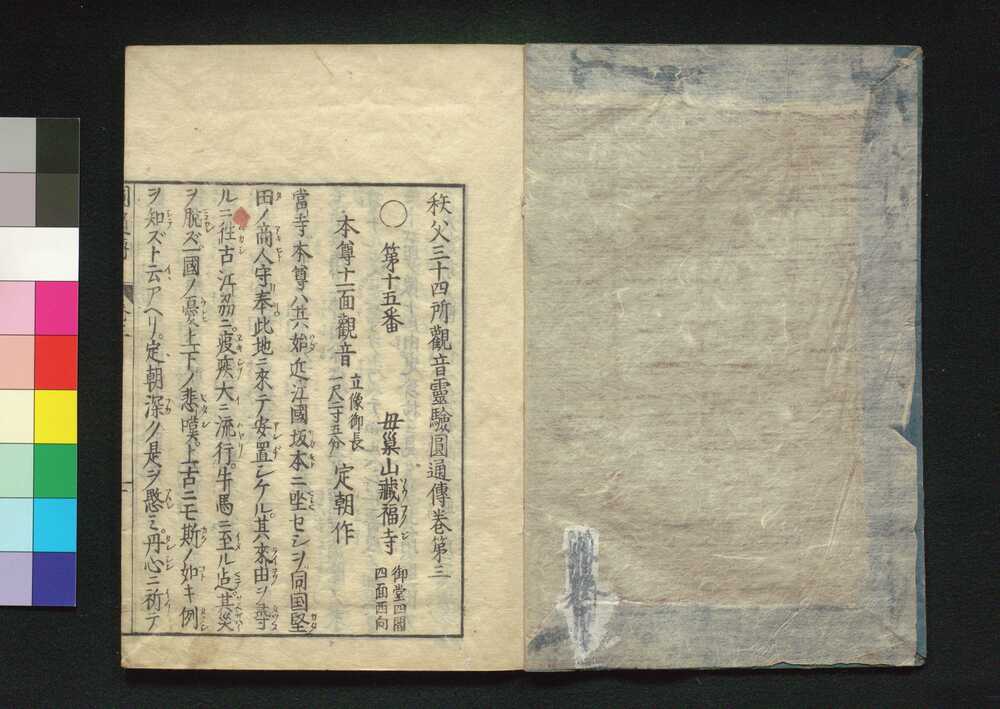 秩父三十四所觀音靈驗圓通傳卷第三
○ 第十五番 毋巢山藏福寺 御堂四間四面西向
本尊十一面觀音 立像御長一尺二寸五分 定朝作
當寺本尊ハ其始近江國坂本ニ坐セシヲ同国堅
田ノ商人守奉此地ニ來テ安置シケル其來由ヲ尋
ルニ往古江刕ニ疫疾大ニ流行牛馬ニ至ル迠其災
ヲ脱ズ一國ノ憂上下ノ悲嘆上古ニモ斯ノ如キ例
ヲ知ズト云アヘリ定朝深ク是ヲ愍ミ丹心ニ祈テ